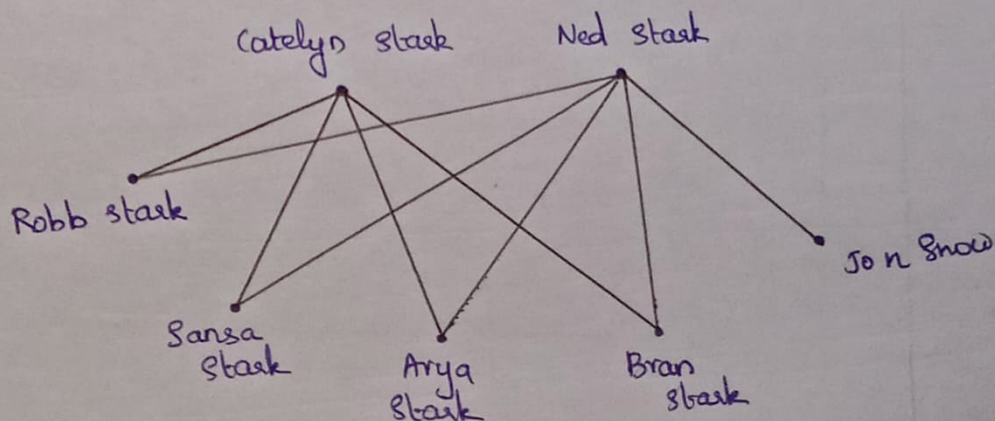 Catelyn Stark
Ned Stark
Robb Stark
Jon Snow
Sansa
Stark
Arya
Stark
Bran
Stark